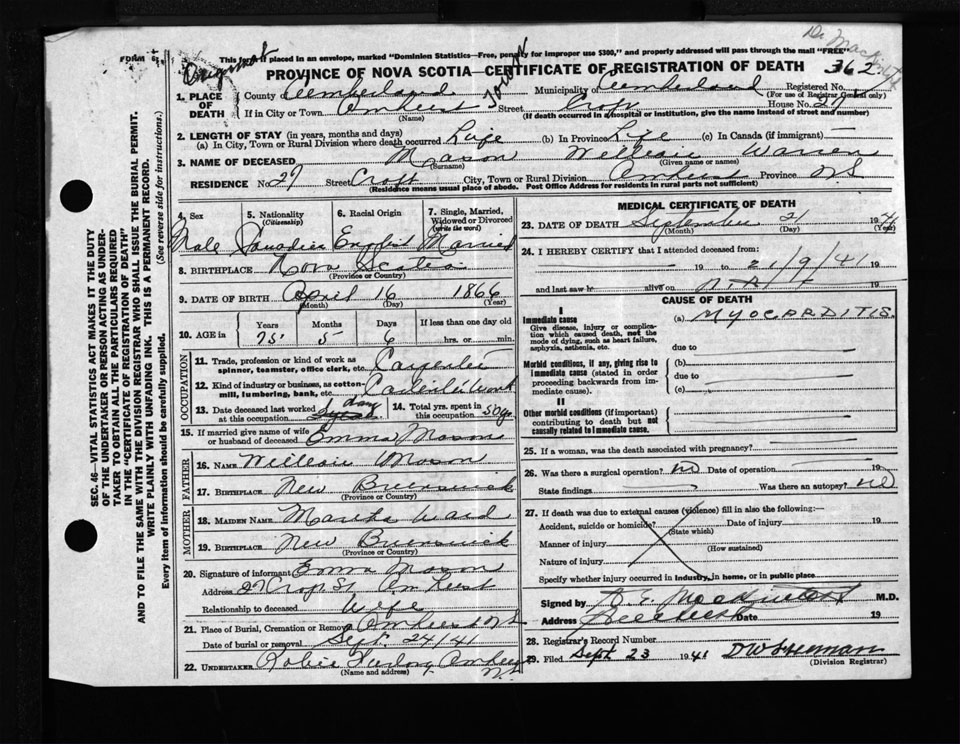 Original
Dr Mackintosh
FORM 6
This form if placed in an envelope, marked "Dominion Statistics—Free, penalty for improper use $300," and properly addressed will pass through the mail "FREE"
PROVINCE OF NOVA SCOTIA—CERTIFICATE OF REGISTRATION OF DEATH
362
1. PLACE OF DEATH
County Cumberland Municipality of Cumberland Registered No.
(For use of Registrar General only)
If in City or Town Amherst Town Street Croft House No. 27
(Name) (If death occurred in a hospital or institution, give the name instead of street and number)
2. LENGTH OF STAY (in years, months and days)
(a) In City, Town or Rural Division where death occurred Life (b) In Province Life (c) In Canada (if immigrant) —
3. NAME OF DECEASED Mason William Warren
(Surname) (Given name or names)
RESIDENCE No. 27 Street Croft City, Town or Rural Division Amherst Province NS
(Residence means usual place of abode. Post Office Address for residents in rural parts not sufficient)
4. Sex 5. Nationality (Citizenship) 6. Racial Origin 7. Single, Married, Widowed or Divorced (write the word)
Male Canadian English Married
8. BIRTHPLACE Nova Scotia
(Province or Country)
9. DATE OF BIRTH April 16 1866
(Month) (Day) (Year)
10. AGE in Years Months Days If less than one day old
75 5 6 hrs. or min.
OCCUPATION
11. Trade, profession or kind of work as spinner, teamster, office clerk, etc. Carpenter
12. Kind of industry or business, as cotton-mill, lumbering, bank, etc. Carpenter Work
13. Date deceased last worked at this occupation 1 day
14. Total yrs. spent in this occupation 50 yrs
15. If married give name of wife or husband of deceased Emma Mason
FATHER
16. NAME William Mason
17. BIRTHPLACE New Brunswick
(Province or Country)
MOTHER
18. MAIDEN NAME Martha Ward
19. BIRTHPLACE New Brunswick
(Province or Country)
20. Signature of informant Emma Mason
Address 27 Croft St Amherst
Relationship to deceased Wife
21. Place of Burial, Cremation or Removal Amherst NS
Date of burial or removal Sept. 24/41
22. UNDERTAKER Furlong Amherst N.S
(Name and address)
MEDICAL CERTIFICATE OF DEATH
23. DATE OF DEATH September 21 1941
(Month) (Day) (Year)
24. I HEREBY CERTIFY that I attended deceased from:
19 to 21/9/41 19
and last saw h alive on 19
CAUSE OF DEATH
I
Immediate cause
Give disease, injury or complication which caused death, not the mode of dying, such as heart failure, asphyxia, asthenia, etc.
(a) MYOCARDITIS.
due to
Morbid conditions, if any, giving rise to immediate cause (stated in order proceeding backwards from immediate cause).
(b)
due to
(c)
II
Other morbid conditions (if important) contributing to death but not causally related to immediate cause.
25. If a woman, was the death associated with pregnancy?
26. Was there a surgical operation? no Date of operation 19
State findings Was there an autopsy? no
27. If death was due to external causes (violence) fill in also the following:—
Accident, suicide or homicide? Date of injury 19
(State which)
Manner of injury
(How sustained)
Nature of injury
Specify whether injury occurred in industry, in home, or in public place
Signed by Mackintosh M.D.
Address Amherst Date 19
28. Registrar's Record Number
29. Filed Sept 23 1941 DW
(Division Registrar)
SEC. 46—VITAL STATISTICS ACT MAKES IT THE DUTY
OF THE UNDERTAKER OR PERSON ACTING AS UNDER-
TAKER TO OBTAIN ALL THE PARTICULARS REQUIRED
IN THE "CERTIFICATE OF REGISTRATION OF DEATH"
AND TO FILE THE SAME WITH THE DIVISION REGISTRAR WHO SHALL ISSUE THE BURIAL PERMIT.
WRITE PLAINLY WITH UNFADING INK. THIS IS A PERMANENT RECORD.
Every item of information should be carefully supplied. (See reverse side for instructions.)